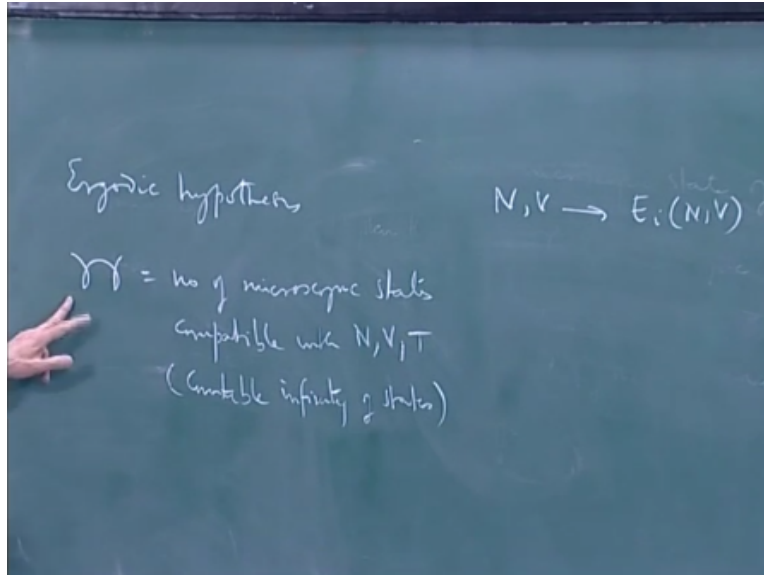 Ergodic hypothesis
N, V → Eᵢ(N,V)
= no of microscopic states
compatible with N, V, T
(Countable infinity of states)